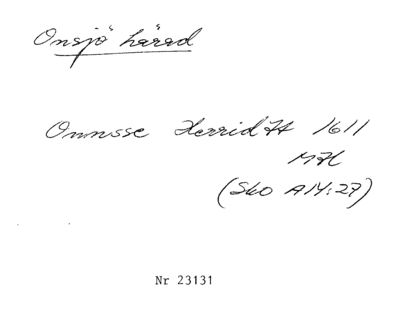 Onsjö härad
Onnsse Herridtt 1611
MH
(Sko A14:27)
Nr 23131